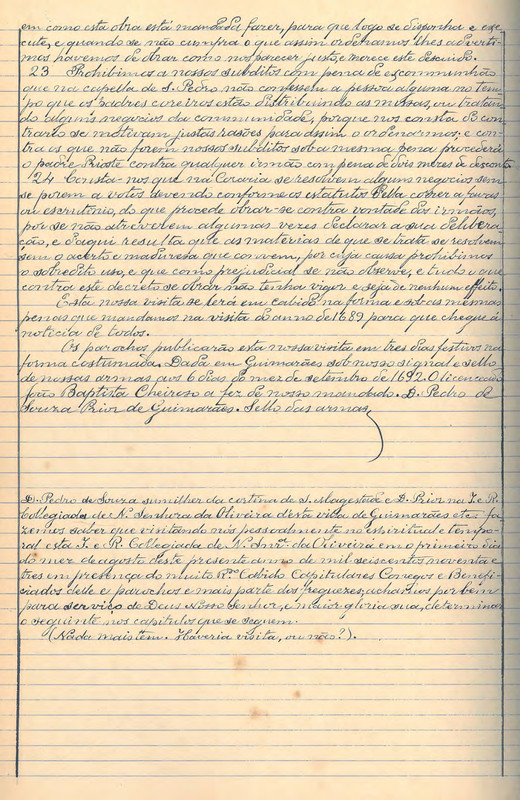 em como esta obra está mandada fazer, para que logo se disponha e exe-
cute, e quando se não cumpra o que assim ordenamos lhes adverti-
mos havemos de obrar como nos parecer justo, e merece este descuido.
23 Prohibimos a nossos subditos com pena de excommunhão
que na capella de S. Pedro não confessem a pessoa alguma no tem-
po que os padres coreiros estão distribuindo as missas, ou tratam
do alguns negocios da communidade, porque nos consta do con-
trario se motivam justas rasões para assim o ordenarmos; e con-
tra os que não forem nossos subditos sob a mesma pena procederá
o padre Prioste contra qualquer irmão com pena de dois mezes de desconto.
24 Consta-nos que na Coraria se resolvem alguns negocios sem
se porem a votos devendo conforme os estatutos d'ella correr a favas
ou escrutinio, do que procede obrar-se contra vontade dos irmãos,
por se não atreverem algumas vezes declarar a sua delibera-
ção, e d'aqui resulta que as materias de que se trata se resolvem
sem o acerto e madureza que convem, por cuja caussa prohibimos
o sobredito uso, e que como prejudicial se não observe, e tudo o que
contra este decreto se obrar não tenha vigor e seja de nenhum effeito.
Esta nossa visita se lerá em cabido na forma e sob as mesmas
penas que mandamos na visita do anno de 1689 para que chegue á
noticia de todos.
Os parochos publicarão esta nossa visita em tres dias festivos na
forma costumada. Dada em Guimarães sob nosso signal e sello
de nossas armas aos 6 dias do mez de setembro de 1692. O licenceado
João Baptista Cheiroso a fez de nosso mandado. D. Pedro de
Souza Prior de Guimarães. Sello das armas.
D. Pedro de Souza sumilher da cortina de S. Magestade e D. Prior na I. e R.
Collegiada de N. Senhora da Oliveira d'esta villa de Guimarães etc. fa-
zemos saber que visitando nós pessoalmente no espiritual e tempo-
ral esta I. e R. Collegiada de N. Snrª da Oliveira em o primeiro dia
do mez de agosto d'este presente anno de mil seiscentos noventa e
tres em presença do muito Rdº Cabido Capitulares Conegos e Benefi-
ciados d'elle e parochos e mais parte dos freguezes, achamos por bem
para serviço de Deus Nosso Senhor, e maior gloria sua, determinar
o seguinte nos capitulos que se seguem.
(Nada mais tem. Haveria visita, ou não?).